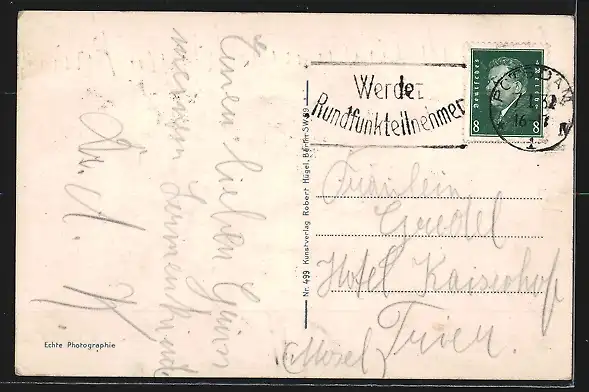 Einen lieben Gruss
meinem Sonnenkind
Dr. A. K.
Echte Photographie
Nr. 499 Kunstverlag Robert Hügel, Berlin SW 29
Werdet
Rundfunkteilnehmer
POTSDAM
Deutsches Reich
8 8
Fräulein
Gredel
Hotel Kaiserhof
Trier
(Mosel)